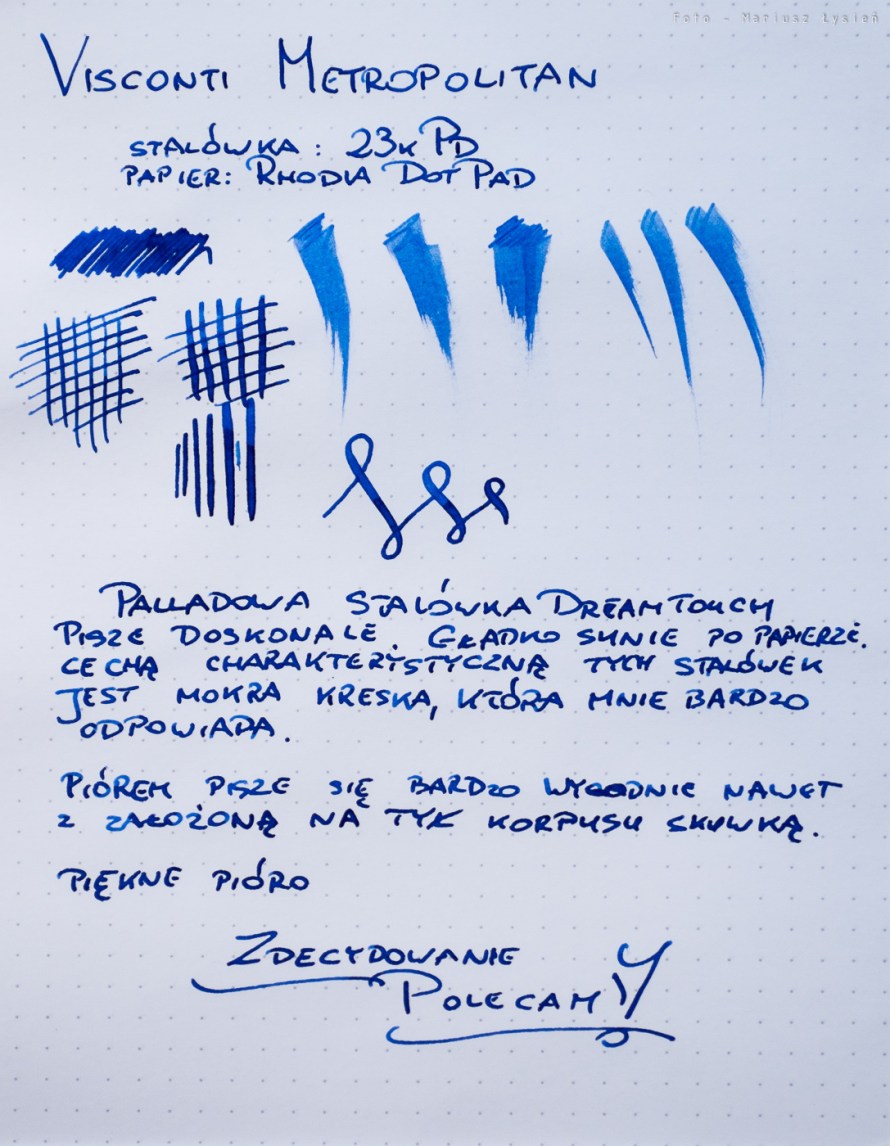 Foto - Mariusz Łysień
VISCONTI METROPOLITAN
STALÓWKA: 23K PD
PAPIER: RHODIA DOT PAD
PALLADOWA STALÓWKA DREAMTOUCH
PISZE DOSKONALE. GŁADKO SUNIE PO PAPIERZE.
CECHĄ CHARAKTERYSTYCZNĄ TYCH STALÓWEK
JEST MOKRA KRESKA, KTÓRA MNIE BARDZO
ODPOWIADA.
PIÓREM PISZE SIĘ BARDZO WYGODNIE NAWET
Z ZAŁOŻONĄ NA TYŁ KORPUSU SKUWKĄ.
PIĘKNE PIÓRO
ZDECYDOWANIE
POLECAM